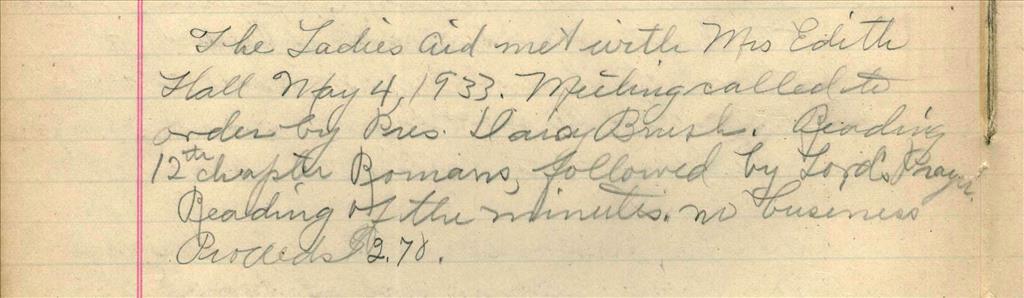 The Ladies Aid met with Mrs Edith
Hall May 4, 1933. Meeting called to
order by Pres. Daisy Brush. Reading
12th chapter Romans, followed by Lord's Prayer.
Reading of the minutes. no business
Proceeds $2.70.